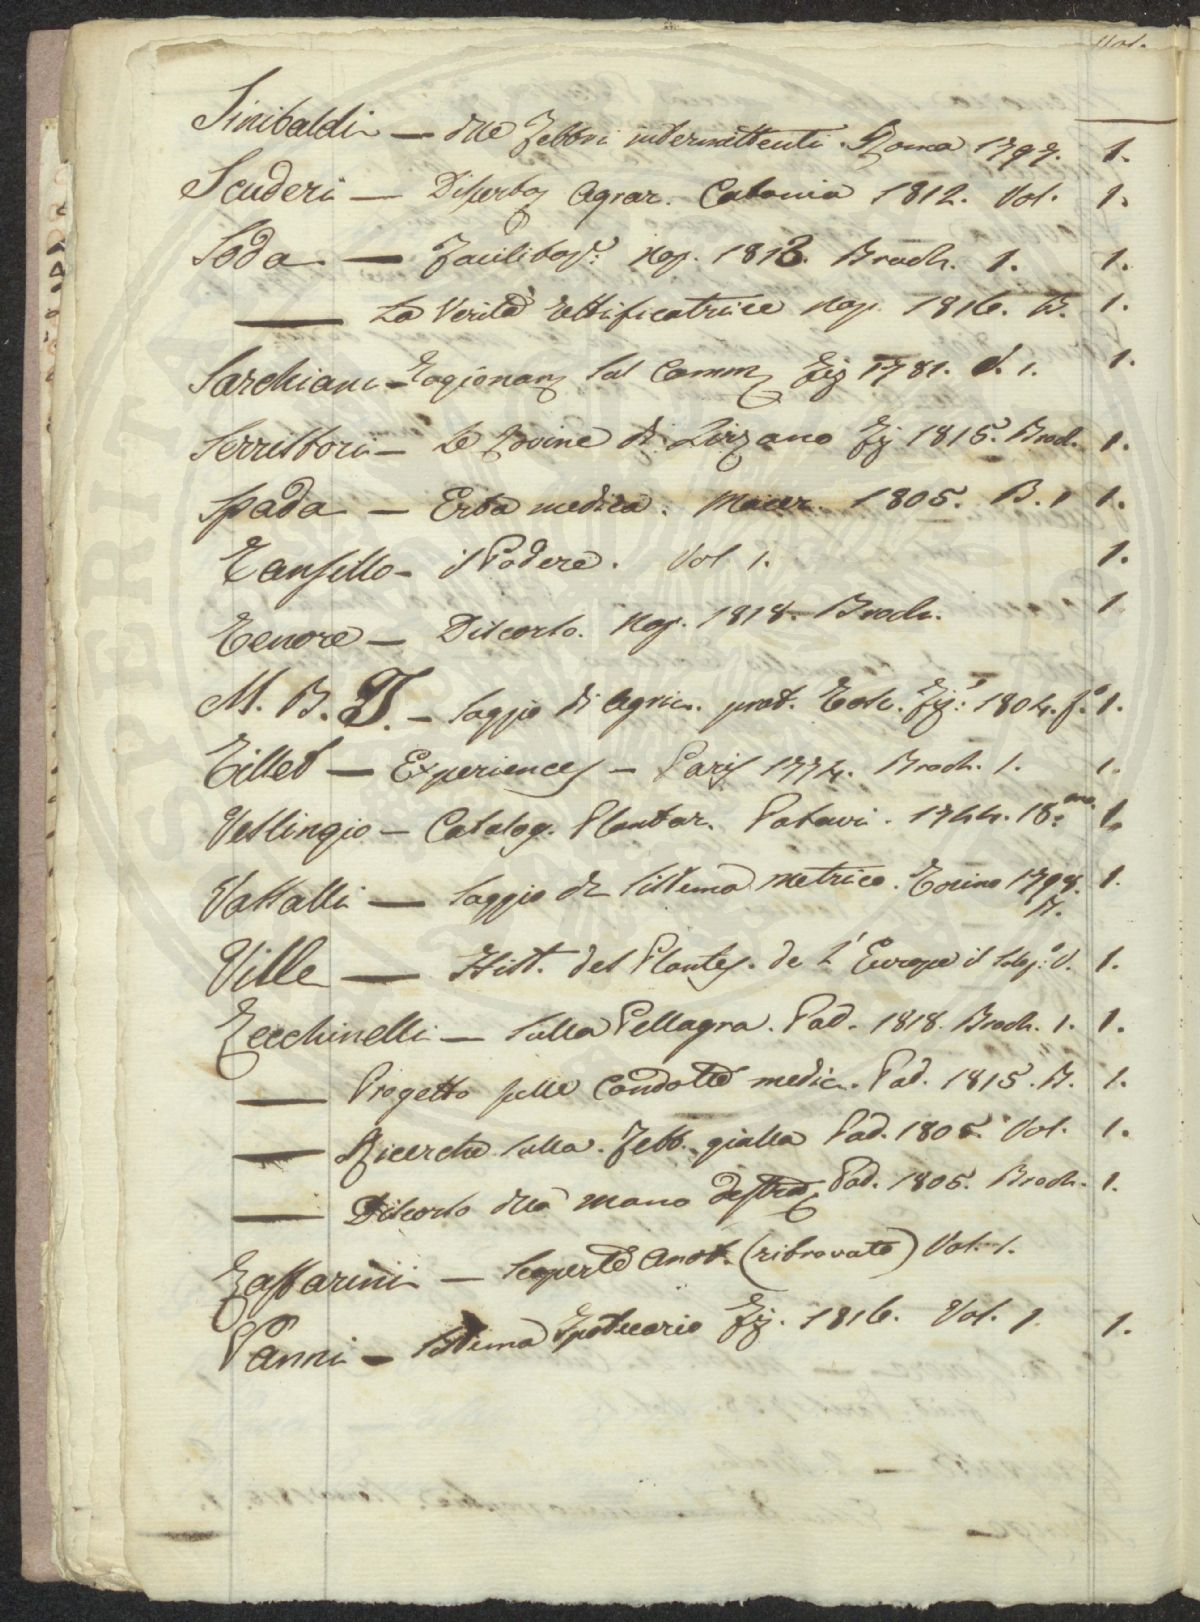 Vol.
Sinibaldi — delle Febbri intermittenti. Roma 1797. 1.
Scuderi — Agrar. Catania 1812. Vol. 1.
Soda — Nap. 1813. Broch. 1. 1.
— La Verità rettificatrice Nap. 1816. B. 1.
Sarchiani — Ragionam. sul Comm. Fir. 1781. 1. 1.
Serristori — Le Rovine di Fir. 1815. Broch. 1.
Spada — Erba medica. Macer. 1805. B. 1 1.
Tansillo — il Podere. Vol 1. 1.
Tenore — Discorso. Nap. 1818. Broch. 1
M. B. T. — Saggio di Agric. prat. Tosc. Fir. 1804. 1.
Tillet — Experiences — Paris 1774. Broch. 1. 1.
Veslingio — Catalog. Plantar. Patavi. 1744. 18.mo 1.
Vassalli — Saggio di Sistema metrico. Torino 1798. 1.
B.
Ville — Hist. des Plantes. de L'Europe V. 1.
Zecchinelli — Sulla Pellagra. Pad. 1818. Broch. 1. 1.
— Progetto sulle Condotte medic. Pad. 1815. B. 1.
— Ricerche sulla Febb. gialla Pad. 1805. Vol. 1.
— Discorso della mano destra Pad. 1805. Broch. 1.
Zaffarini — Scoperte Anat. (ritrovato) Vol. 1.
Vanni — Sistema Ipotecario Fir. 1816. Vol. 1 1.